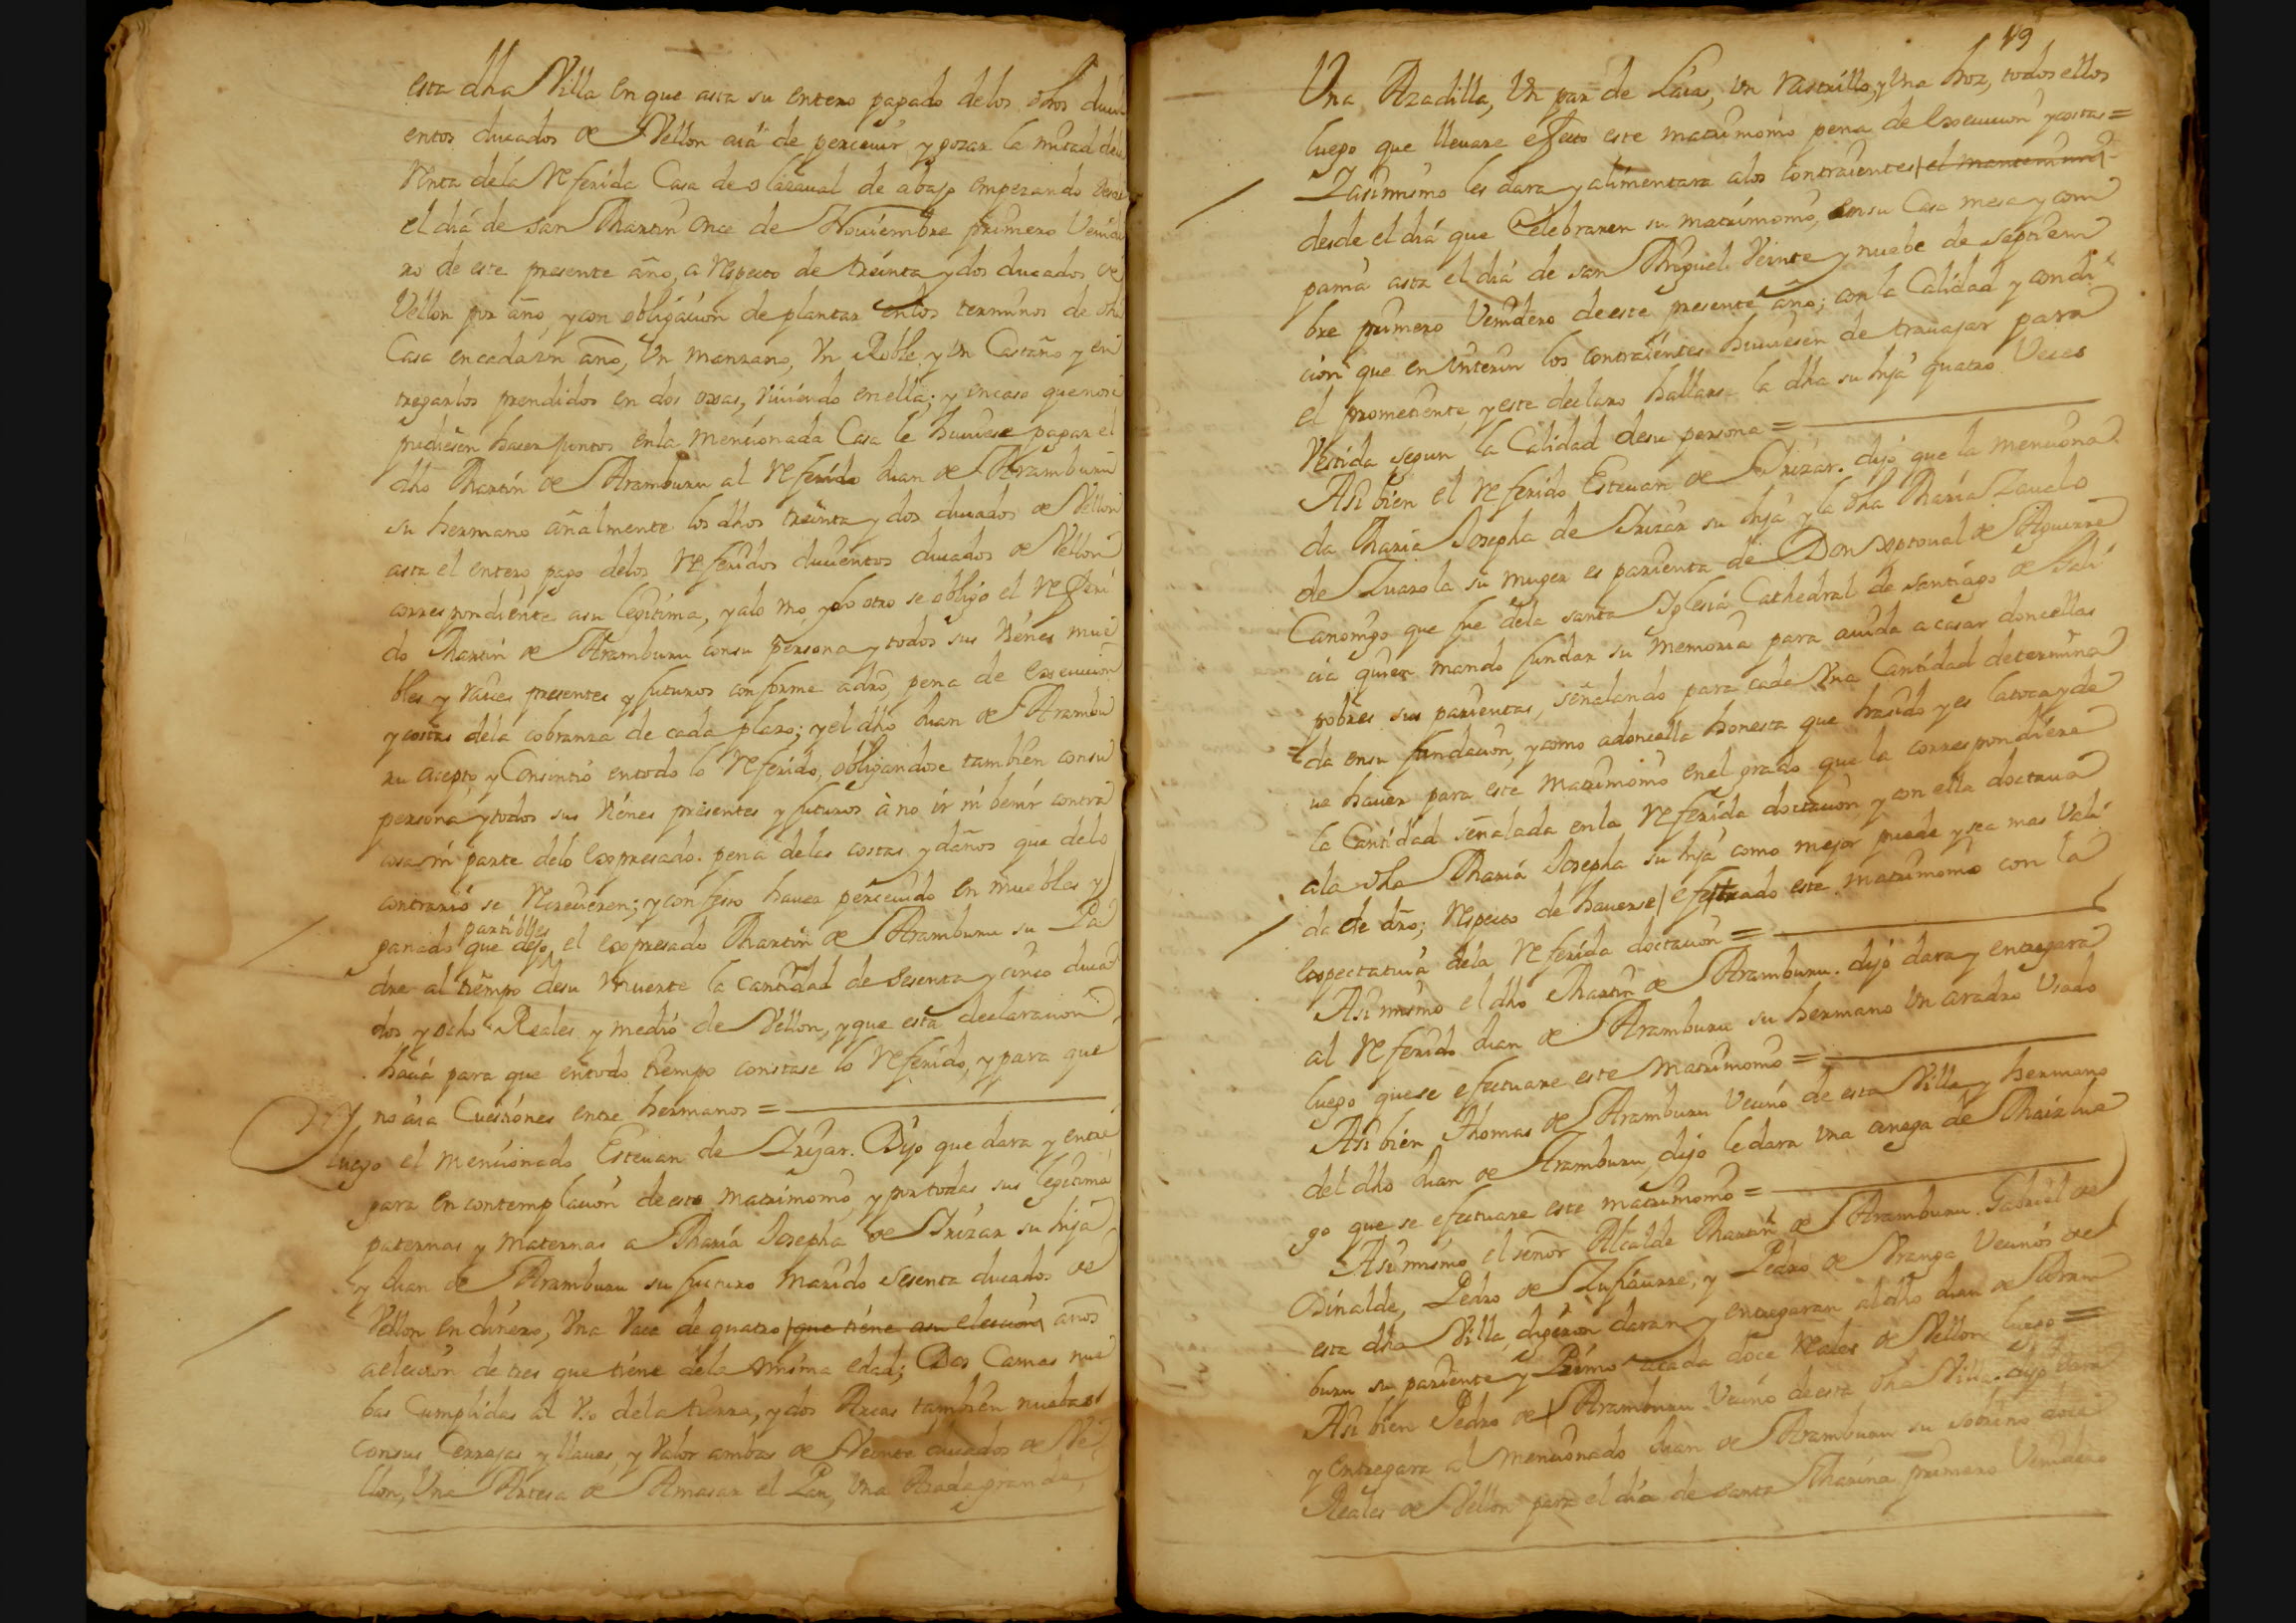 esta dha Villa en que asta su entero pagado delos dhos duci
entos ducados de Vellon aiá de percevir y gozar la mitad dela
Renta dela Referida Casa de olazaval de abajo empezando desde
el diá de san Martin once de Noviembre primero Venide
ro de este presente año, a respecto de treinta y dos ducados de
Vellon por año, y con obligacion de plantar enlos terminos de dha
Casa encadaun año, Un manzano, Un Roble y Un Castaño y en
tregarlos prendidos en dos ojas, viviendo enella; y encaso quenose
pudiesen hacer juntos enla mencionada Casa le huviese pagar el
dho Martin de Aramburu al Referido Juan de Aramburu
su hermano añalmente los dhos treinta y dos ducados de Vellon
asta el entero pago delos Referidos ducientos ducados de Vellon
correspondiente asu legitima, y alo uno, y lo otro se obligó el Referi
do Martin de Aramburu consu persona y todos sus vienes mue
bles y raices presentes y futuros conforme adro, pena de execucion
y costas dela cobranza de cada plazo; y el dho Juan de Arambu
ru aceptó, y Consintió entodo lo Referido, obligandose tambien consu
persona y todos sus vienes presentes y futuros à no ir ni benir contra
cosa ni parte delo expresado. pena delas costas y daños que delo
contrario se Recrecieren; y confesó haver percevido en muebles y
partibles
ganado que dejo, el expresado Martin de Aramburu su Pa
dre al tiempo desu Muerte la cantidad de sesenta y cinco duca
dos y ocho Reales y medio de Vellon, y que esta declaracion
hacia para que entodo tiempo constase lo Referido, y para que
no áia Cuestiónes entre hermanos =
Y luego el mencionado Estevan de Irizar. Dijo que dara y entre
gara en contemplacion deeste matrimomo, y por todas sus legitimas
paternas y maternas a Maria Josepha de Irizar su hija
y Juan de Aramburu su futuro marido sesenta ducados de
Vellon en dinero, Una Vaca de quatro que tiene asu eleccion años
aeleccion de tres que tiene dela misma edad; Dos Camas nue
bas Cumplidas al Uso dela tierra, y dos Arcas tambien nuebas
consus Cerrajas y llaves, y Valor ambas de Veinte ducados de Ve
llon, Una Artesa de Amasar el Pan, Una Azada grande,
19
Una Azadilla, Un par de Laias, Un rastrillo, y Una hoz, todos ellos
luego que llevare efecto este matrimomo pena de execucion y costas =
Yasimismo les dara y alimentara alos contraientes
desde el dia que Celebraren su matrimomo, en su Casa mesa y com
pama asta el diá de san Miguel Veinte y nuebe de septiem
bre primero Venidero deeste presente año; con la Calidad y condi
cion que en interin los contraientes huviesen de travajar para
el prometiente, y este declaro hallarse la dha su hija quatro Veces
Vestida segun la Calidad desu persona =
Asi bien el referido Estevan de Irizar. dijo que la menciona
da Maria Josepha de Irizar su hija y la dha Maria Zavelo
de Zuazola su muger es parienta de Don Xptoval de Aguirre
Canonigo que fue dela santa Yglesia Cathedral de santiago de Gali
cia quien mando fundar su Memoria para auida a casar doncellas
pobres sus parientas, señalando para cada Una Cantidad determina
da ensu fundacion, y como adoncella honesta que hasido y es latoca y de
ve haver para este Matrimomo enel grado que la correspondiere
la Cantidad señalada enla referida doctacion, y con ella doctava
ala dha Maria Josepha su hija como mejor puede y sea mas Vali
da de dro; respecto de haverse efectuado este matrimomo con la
expectativa dela referida doctacion =
Asimismo el dho Martin de Aramburu. dijo dara y entregara
al Referido Juan de Aramburu su hermano Un aradro Usado
luego quese efectuare este Matrimomo =
Asi bien Thomas de Aramburu Vecino de esta Villa y hermano
del dho Juan de Aramburu, dijo ledara Una anega de Maiz lue
go que se efectuare este matrimomo =
Asimismo el señor Alcalde Martin de Aramburu. Gabriel de
Odinalde, Pedro de Zufiaurre, y Pedro de Aranga Vecinos de
esta dha Villa, digeron daran y entregaran al dho Juan de Aram
buru su pariente y Primo acada doce reales de Vellon luego =
Asi bien Pedro de Aramburu Vecino deesta dha Villa. dijo dara
y entregara al mencionado Juan de Aramburu su sobrino doce
Reales de Vellon para el dia de santa Marina primero Venidero